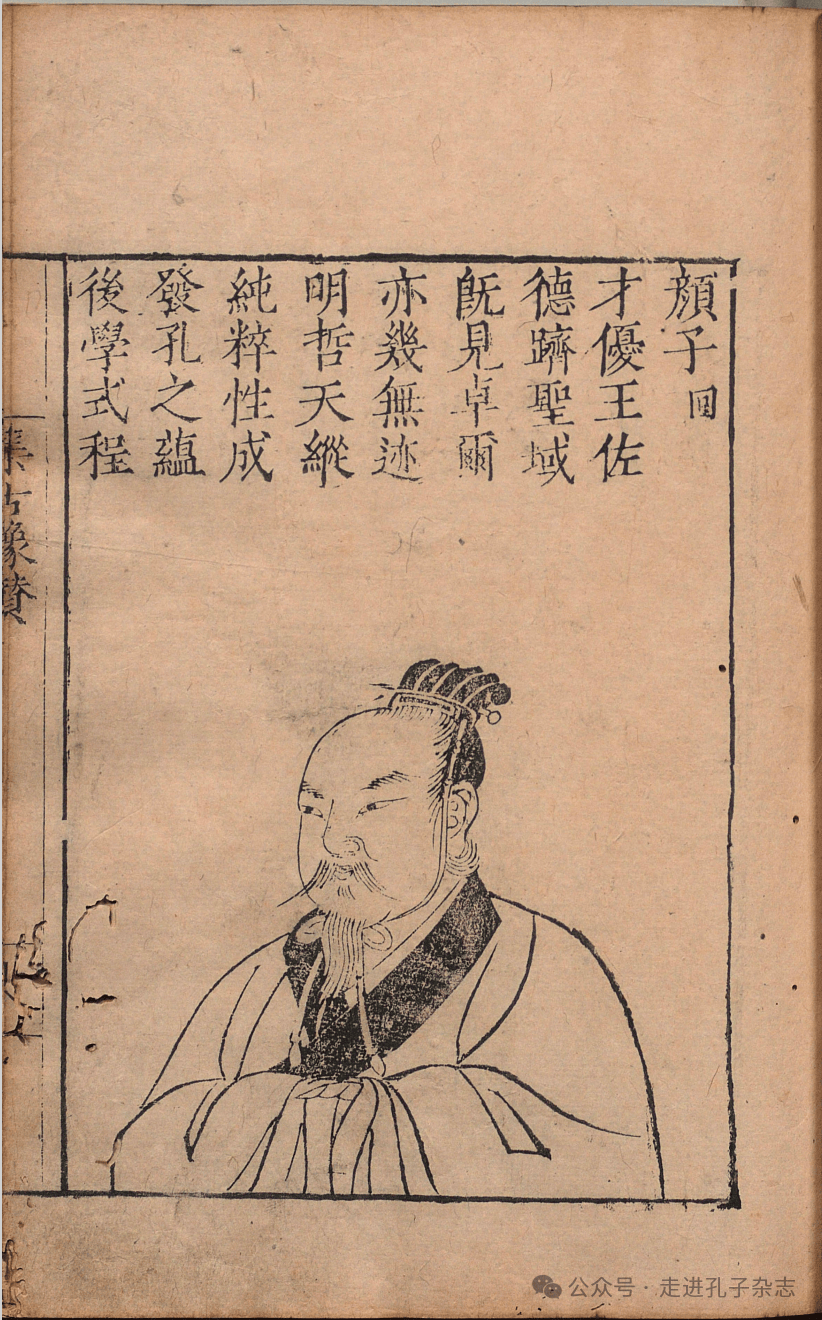 顏子回
才優王佐
德躋聖域
旣見卓爾
亦幾無迹
明哲天縱
純粹性成
發孔之蘊
後學式程
集古像贊
公众号 · 走进孔子杂志